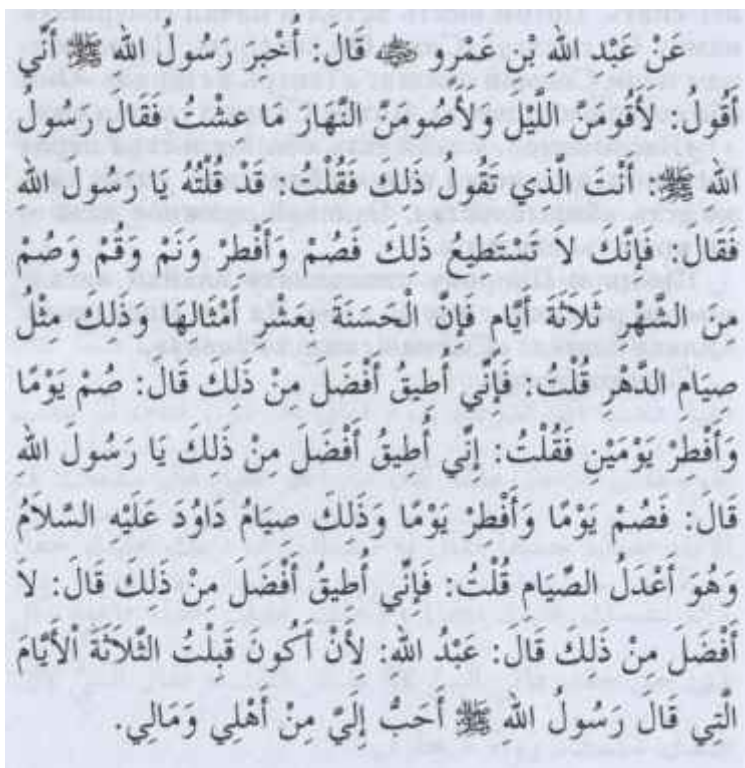 عَنْ عَبْدِ اللهِ بْنِ عَمْرٍو ﷁ قَالَ: أُخْبِرَ رَسُولُ اللهِ ﷺ أَنِّي
أَقُولُ: لَأَقُومَنَّ اللَّيْلَ وَلَأَصُومَنَّ النَّهَارَ مَا عِشْتُ فَقَالَ رَسُولُ
اللهِ ﷺ: أَنْتَ الَّذِي تَقُولُ ذَلِكَ فَقُلْتُ: قَدْ قُلْتُهُ يَا رَسُولَ اللهِ
فَقَالَ: فَإِنَّكَ لاَ تَسْتَطِيعُ ذَلِكَ فَصُمْ وَأَفْطِرْ وَنَمْ وَقُمْ وَصُمْ
مِنَ الشَّهْرِ ثَلاَثَةَ أَيَّامٍ فَإِنَّ الْحَسَنَةَ بِعَشْرِ أَمْثَالِهَا وَذَلِكَ مِثْلُ
صِيَامِ الدَّهْرِ قُلْتُ: فَإِنِّي أُطِيقُ أَفْضَلَ مِنْ ذَلِكَ قَالَ: صُمْ يَوْمًا
وَأَفْطِرْ يَوْمَيْنِ فَقُلْتُ: إِنِّي أُطِيقُ أَفْضَلَ مِنْ ذَلِكَ يَا رَسُولَ اللهِ
قَالَ: فَصُمْ يَوْمًا وَأَفْطِرْ يَوْمًا وَذَلِكَ صِيَامُ دَاوُدَ عَلَيْهِ السَّلاَمُ
وَهُوَ أَعْدَلُ الصِّيَامِ قُلْتُ: فَإِنِّي أُطِيقُ أَفْضَلَ مِنْ ذَلِكَ قَالَ: لاَ
أَفْضَلَ مِنْ ذَلِكَ قَالَ: عَبْدُ اللهِ: لأَنْ أَكُونَ قَبِلْتُ الثَّلاَثَةَ الْأَيَّامَ
الَّتِي قَالَ رَسُولُ اللهِ ﷺ أَحَبُّ إِلَيَّ مِنْ أَهْلِي وَمَالِي.